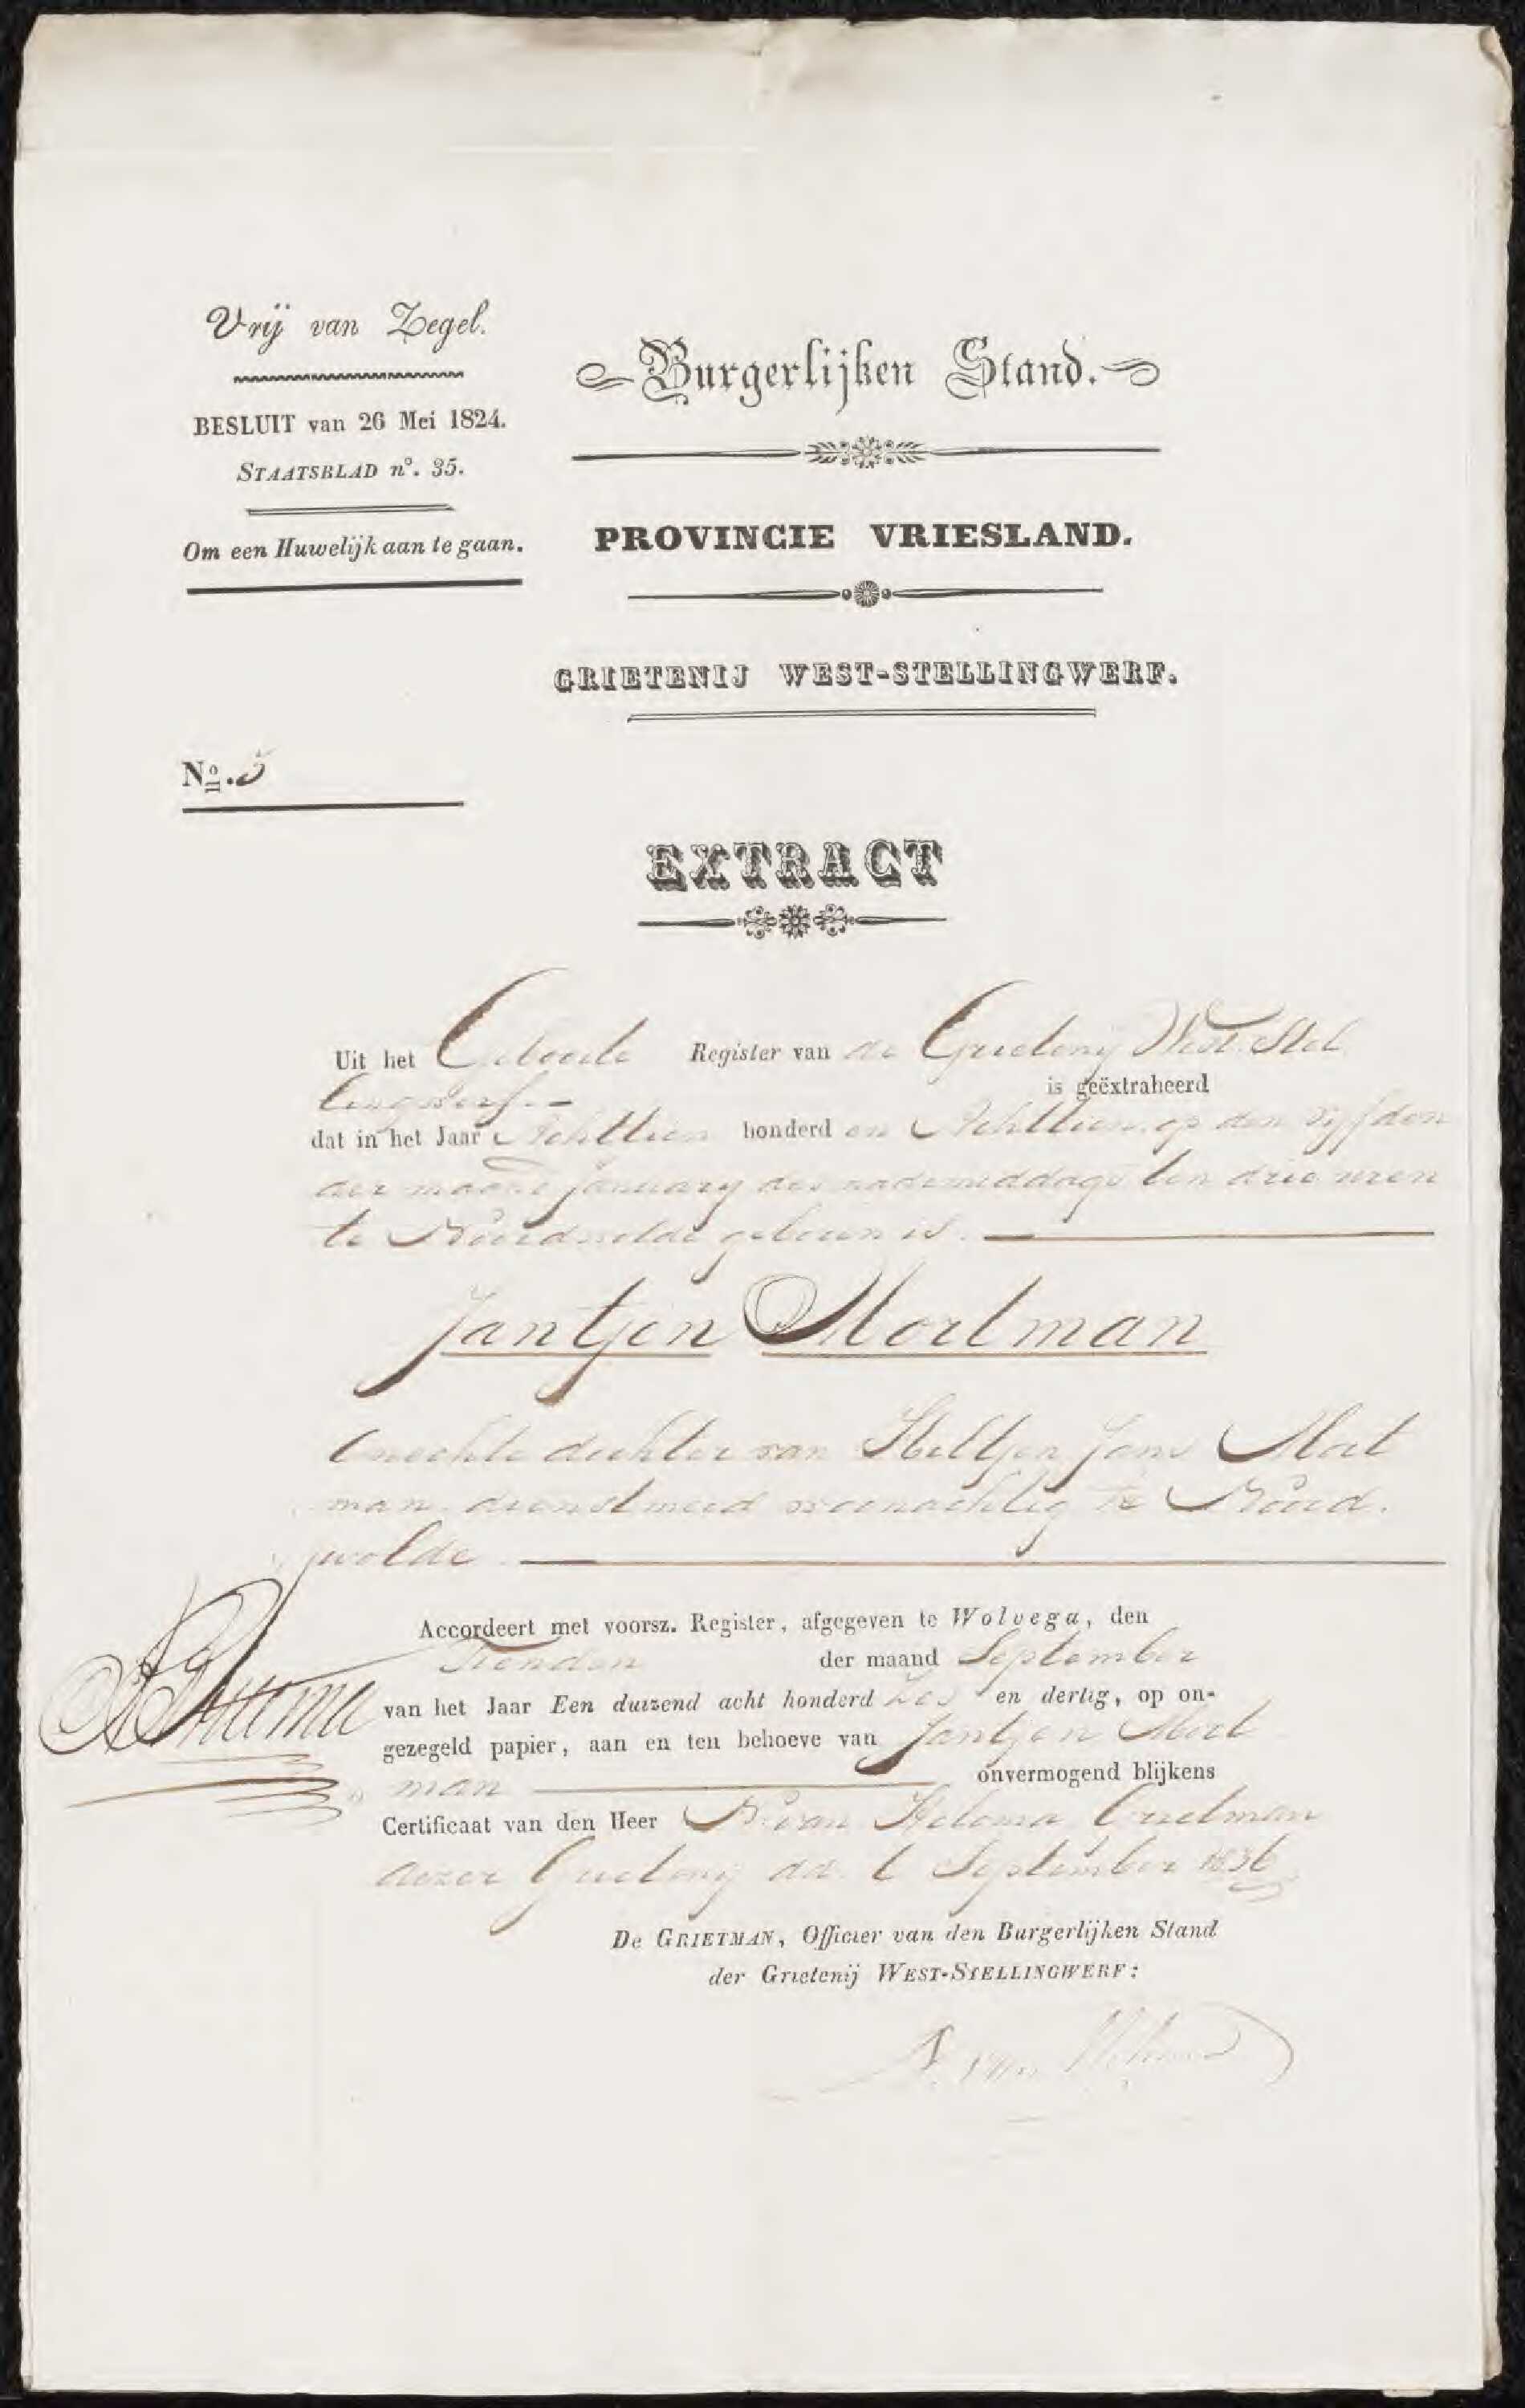 Vrij van Zegel.
BESLUIT van 26 Mei 1824.
STAATSBLAD nº. 35.
Om een Huwelijk aan te gaan.
Burgerlijken Stand.
PROVINCIE VRIESLAND.
GRIETENIJ WEST-STELLINGWERF.
Nº. 5
EXTRACT
Uit het Geboorte Register van de Grietenij West Stel
lingwerf is geëxtraheerd
dat in het Jaar Achttien honderd en Achttien, op den vijfden
der maand January des nademiddags ten drie uren
te Noordwolde geboren is.
Jantjen Mortman
Onechte dochter van Hiltjen Jans Mort
man dienstmeid woonachtig te Noord.
wolde.
Accordeert met voorsz. Register, afgegeven te Wolvega, den
Tienden der maand September
van het Jaar Een duizend acht honderd Zes en dertig, op on-
gezegeld papier, aan en ten behoeve van Jantjen Mort
man onvermogend blijkens
Certificaat van den Heer N. van Heloma Grietman
dezer Grietenij dd. September 1836
De GRIETMAN, Officier van den Burgerlijken Stand
der Grietenij WEST-STELLINGWERF:
N. van Heloma